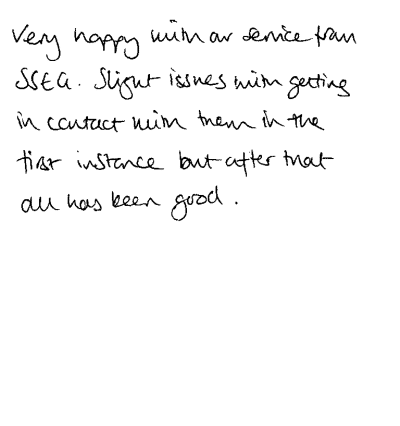 Very happy with our service from
SSEG. Slight issues with getting
in contact with them in the
first instance but after that
all has been good.